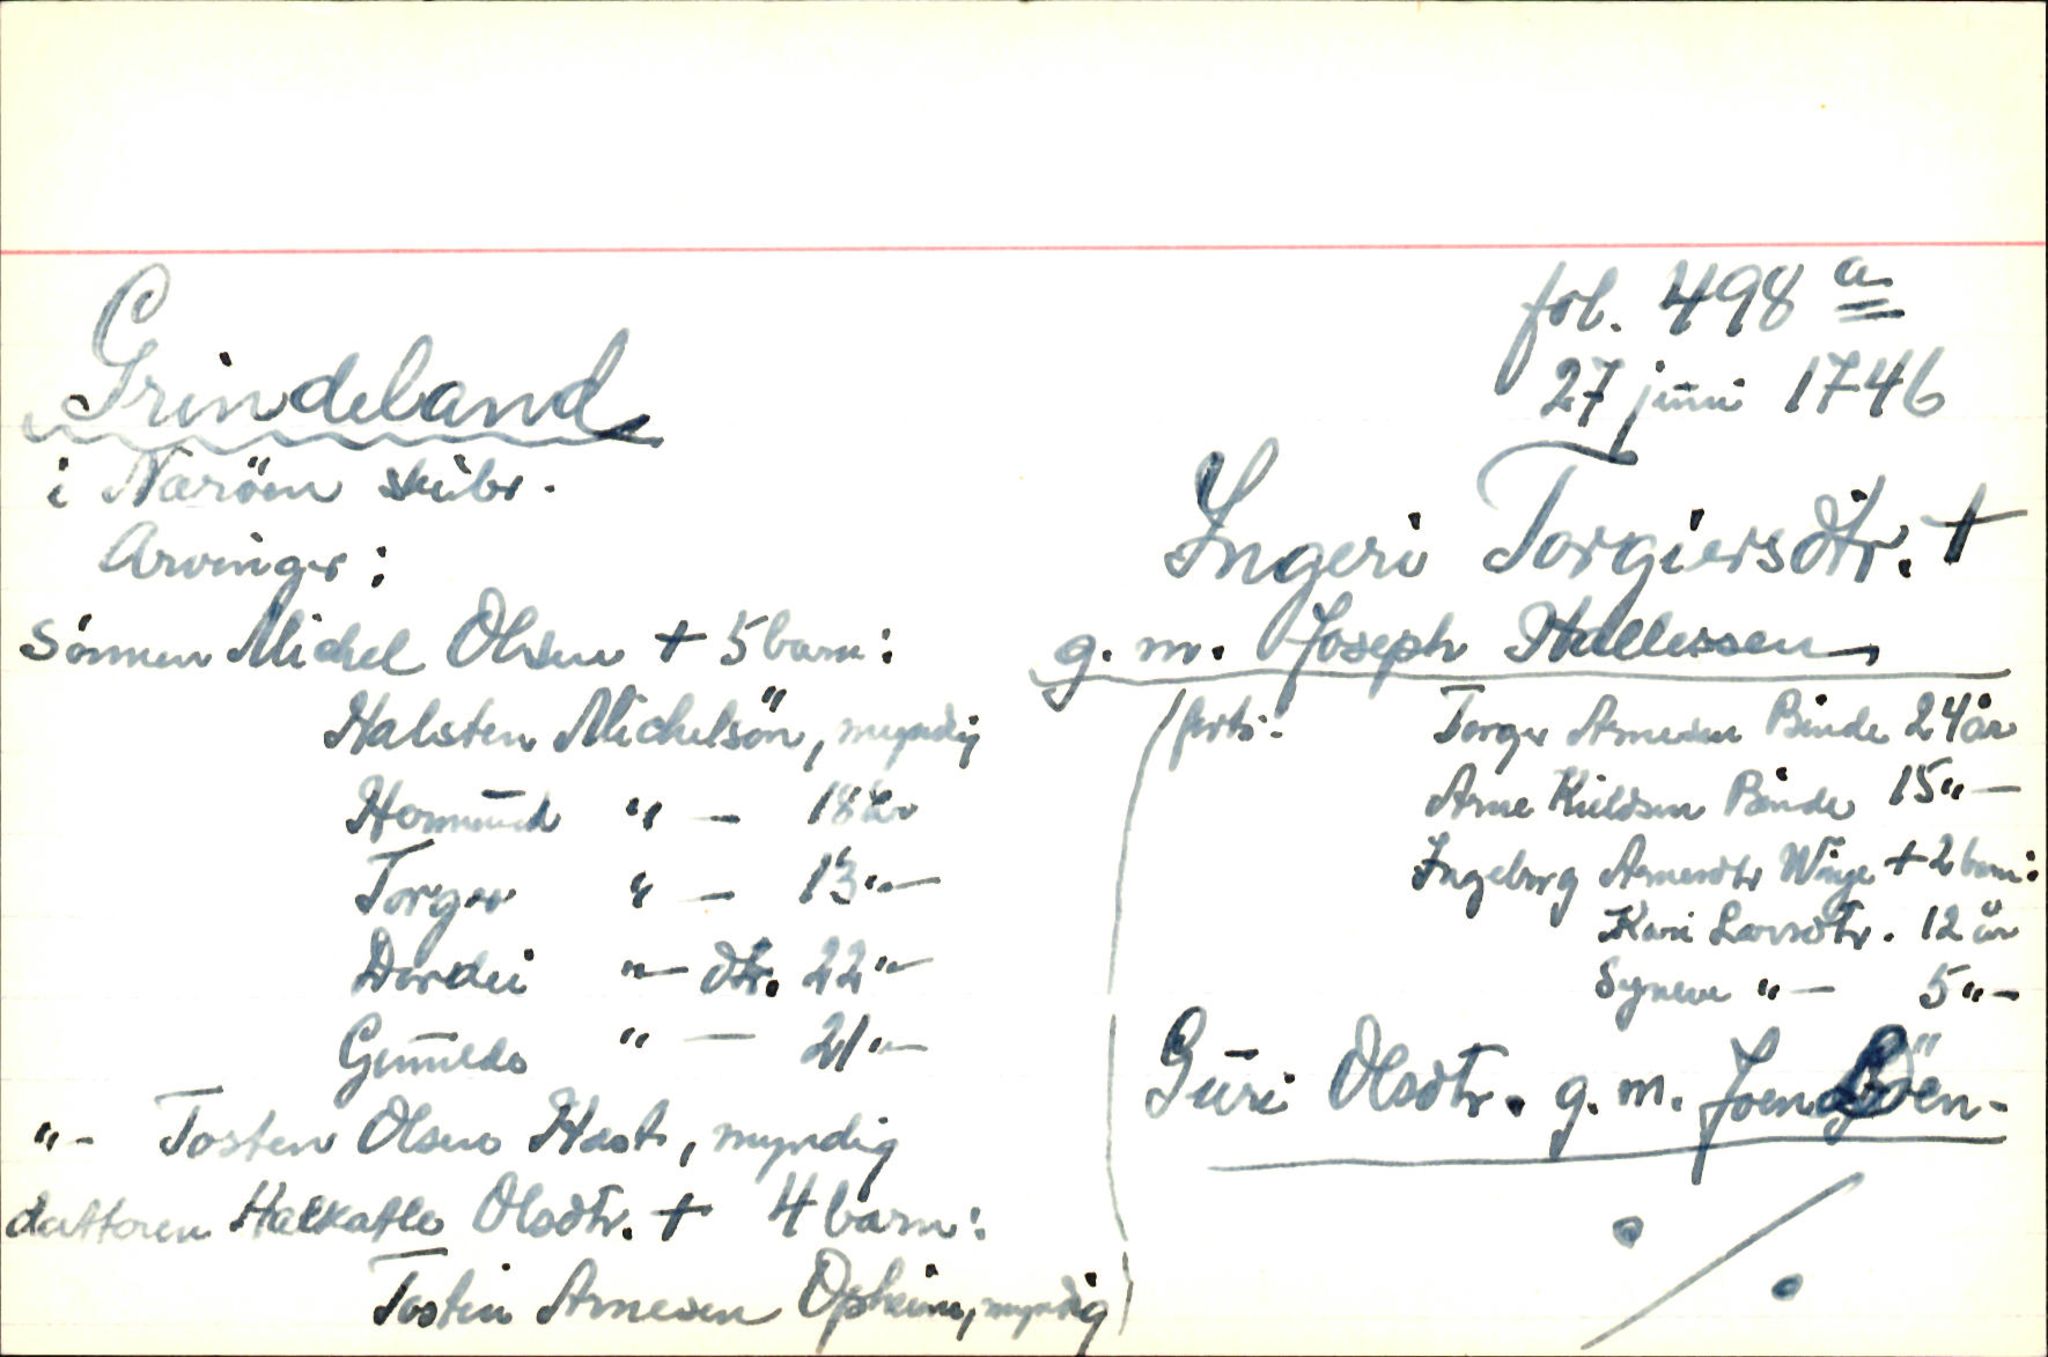 fol. 498 a
27 juni 1746
Grindeland
i Nærøen skibr.
Ingeri Torgiersdtr. +
g. m. Joseph Hallessen
Arvinger:
Sønnen Michel Olsen + 5 barn:
Halsten Michelsön, myndig
Hommund "— 18 år
Torger "— 13 "—
Dordei "— dtr. 22 "—
Gunilda "— 21 "—
"— Tosten Olsen Hæt, myndig
datteren Halkatle Olsdtr. + 4 barn:
Tostein Arnesen Opheim, myndig
forts: Torger Arnesen Binde 24 år
Arne Kieldsen Binde 15 "—
Ingeborg Arnesdtr Winje + 2 barn:
Kari Larsdtr. 12 år
Syneve "— 5 "—
Guri Olsdtr. g. m. Joen